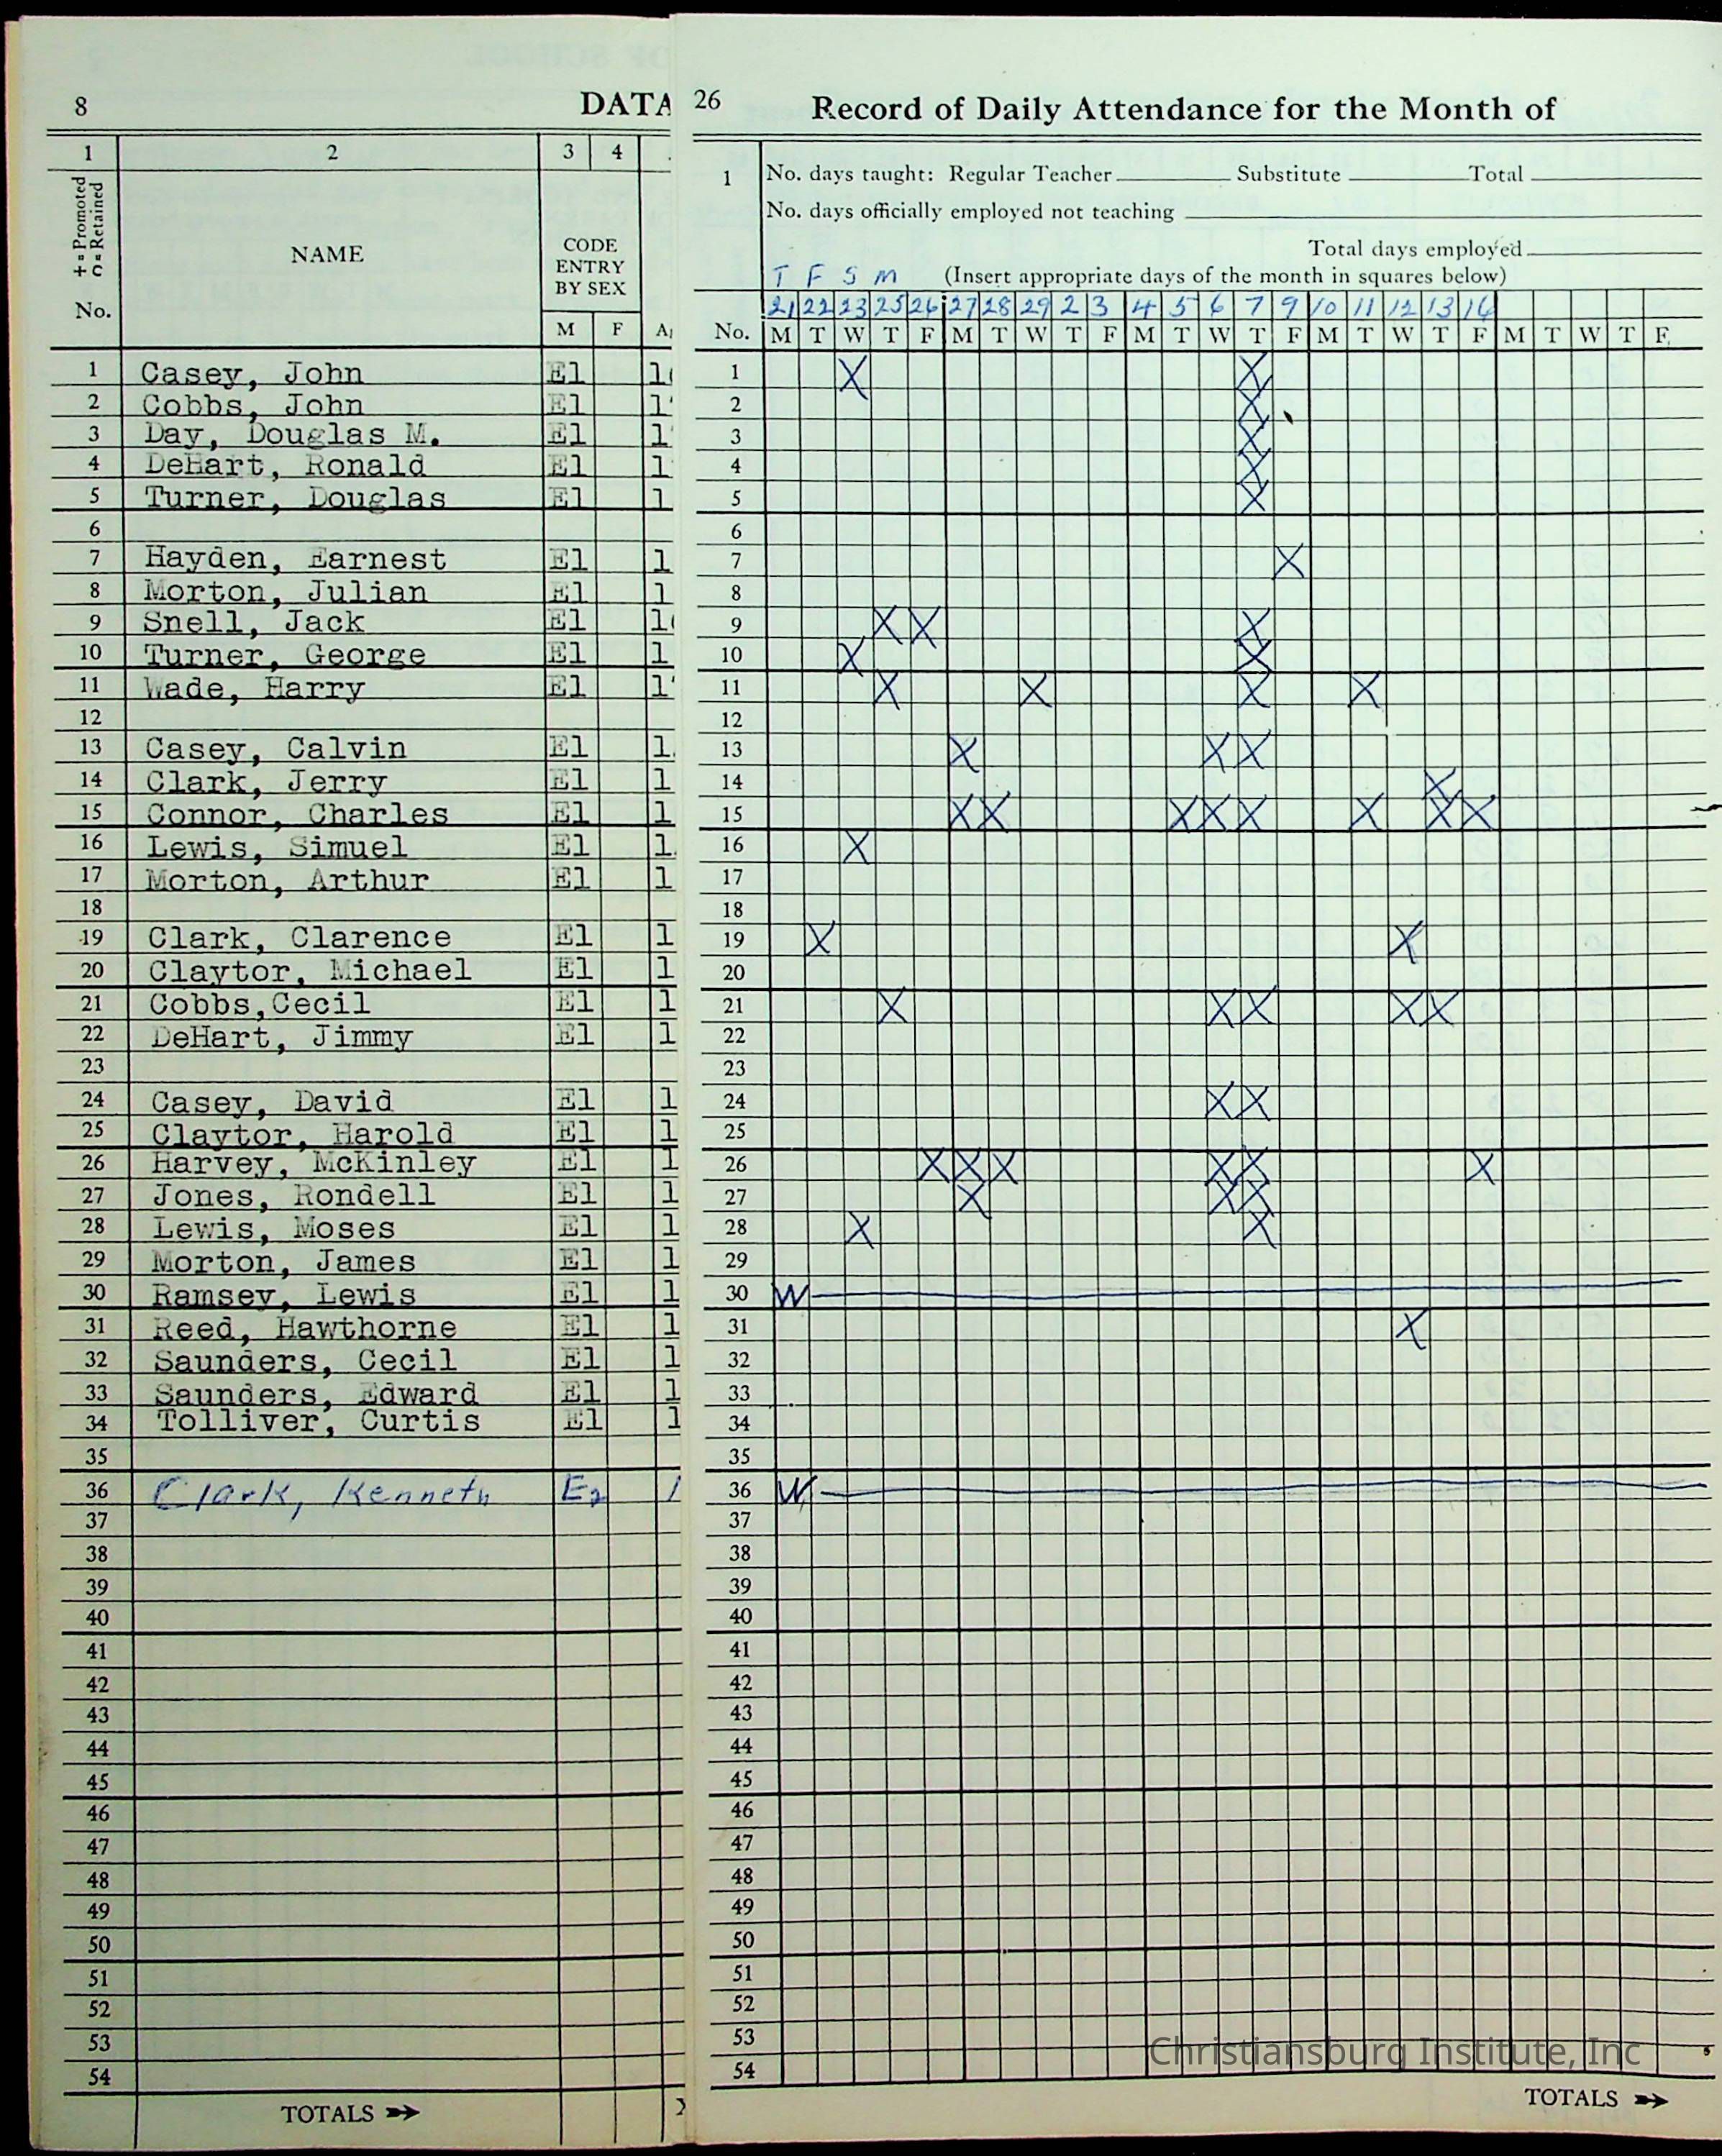 8
DATA
1 2 3 4
+ = Promoted
o = Retained
No.
NAME
CODE
ENTRY
BY SEX
M F
1 Casey, John E1
2 Cobbs, John E1
3 Day, Douglas M. E1
4 DeHart, Ronald E1
5 Turner, Douglas E1
6
7 Hayden, Earnest E1
8 Morton, Julian E1
9 Snell, Jack E1
10 Turner, George E1
11 Wade, Harry E1
12
13 Casey, Calvin E1
14 Clark, Jerry E1
15 Connor, Charles E1
16 Lewis, Simuel E1
17 Morton, Arthur E1
18
19 Clark, Clarence E1
20 Claytor, Michael E1
21 Cobbs,Cecil E1
22 DeHart, Jimmy E1
23
24 Casey, David E1
25 Claytor, Harold E1
26 Harvey, McKinley E1
27 Jones, Rondell E1
28 Lewis, Moses E1
29 Morton, James E1
30 Ramsey, Lewis E1
31 Reed, Hawthorne E1
32 Saunders, Cecil E1
33 Saunders, Edward E1
34 Tolliver, Curtis E1
35
36 Clark, Kenneth E2
37
38
39
40
41
42
43
44
45
46
47
48
49
50
51
52
53
54
TOTALS
26
Record of Daily Attendance for the Month of
1 No. days taught: Regular Teacher Substitute Total
No. days officially employed not teaching
Total days employed
T F S M (Insert appropriate days of the month in squares below)
21 22 23 25 26 27 28 29 2 3 4 5 6 7 9 10 11 12 13 14
No. M T W T F M T W T F M T W T F M T W T F M T W T F
1 X X
2 X
3 X
4 X
5 X
6
7 X
8
9 X X X
10 X X
11 X X X X
12
13 X X X
14 X
15 X X X X X X X X
16 X
17
18
19 X X
20
21 X X X X X
22
23
24 X X
25
26 X X X X X X
27 X X X
28 X X
29
30 W
31 X
32
33
34
35
36 W
37
38
39
40
41
42
43
44
45
46
47
48
49
50
51
52
53
54
Christiansburg Institute, Inc
TOTALS